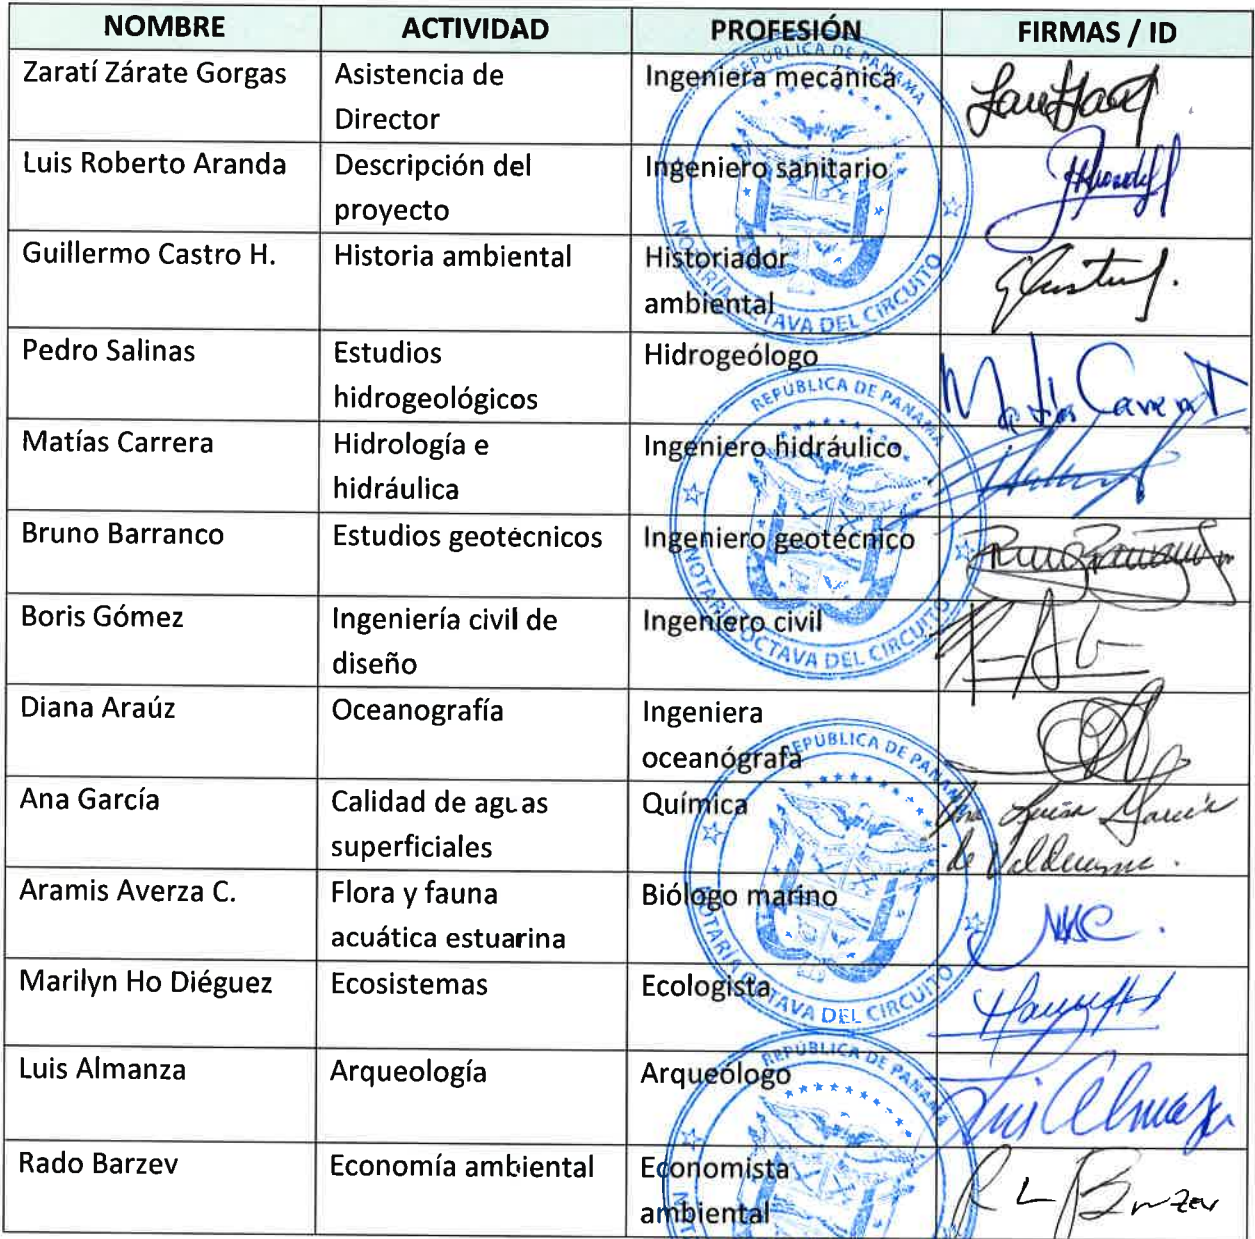 NOMBRE ACTIVIDAD PROFESIÓN FIRMAS / ID
Zaratí Zárate Gorgas Asistencia de Ingeniera mecánica
Director
Luis Roberto Aranda Descripción del Ingeniero sanitario
proyecto
Guillermo Castro H. Historia ambiental Historiador
ambiental
Pedro Salinas Estudios Hidrogeólogo
hidrogeológicos Matías Carrera
Matías Carrera Hidrología e Ingeniero hidráulico
hidráulica
Bruno Barranco Estudios geotécnicos Ingeniero geotécnico
Boris Gómez Ingeniería civil de Ingeniero civil
diseño
Diana Araúz Oceanografía Ingeniera
oceanógrafa
Ana García Calidad de aguas Química Ana Luisa García
superficiales de
Aramis Averza C. Flora y fauna Biólogo marino
acuática estuarina
Marilyn Ho Diéguez Ecosistemas Ecologista
Luis Almanza Arqueología Arqueólogo Luis Almanza
Rado Barzev Economía ambiental Economista R L Barzev
ambiental
REPÚBLICA DE PANAMA
NOTARÍA OCTAVA DEL CIRCUITO
REPÚBLICA DE PANAMA
NOTARÍA OCTAVA DEL CIRCUITO
REPÚBLICA DE PANAMA
NOTARÍA OCTAVA DEL CIRCUITO
REPÚBLICA DE PANAMA